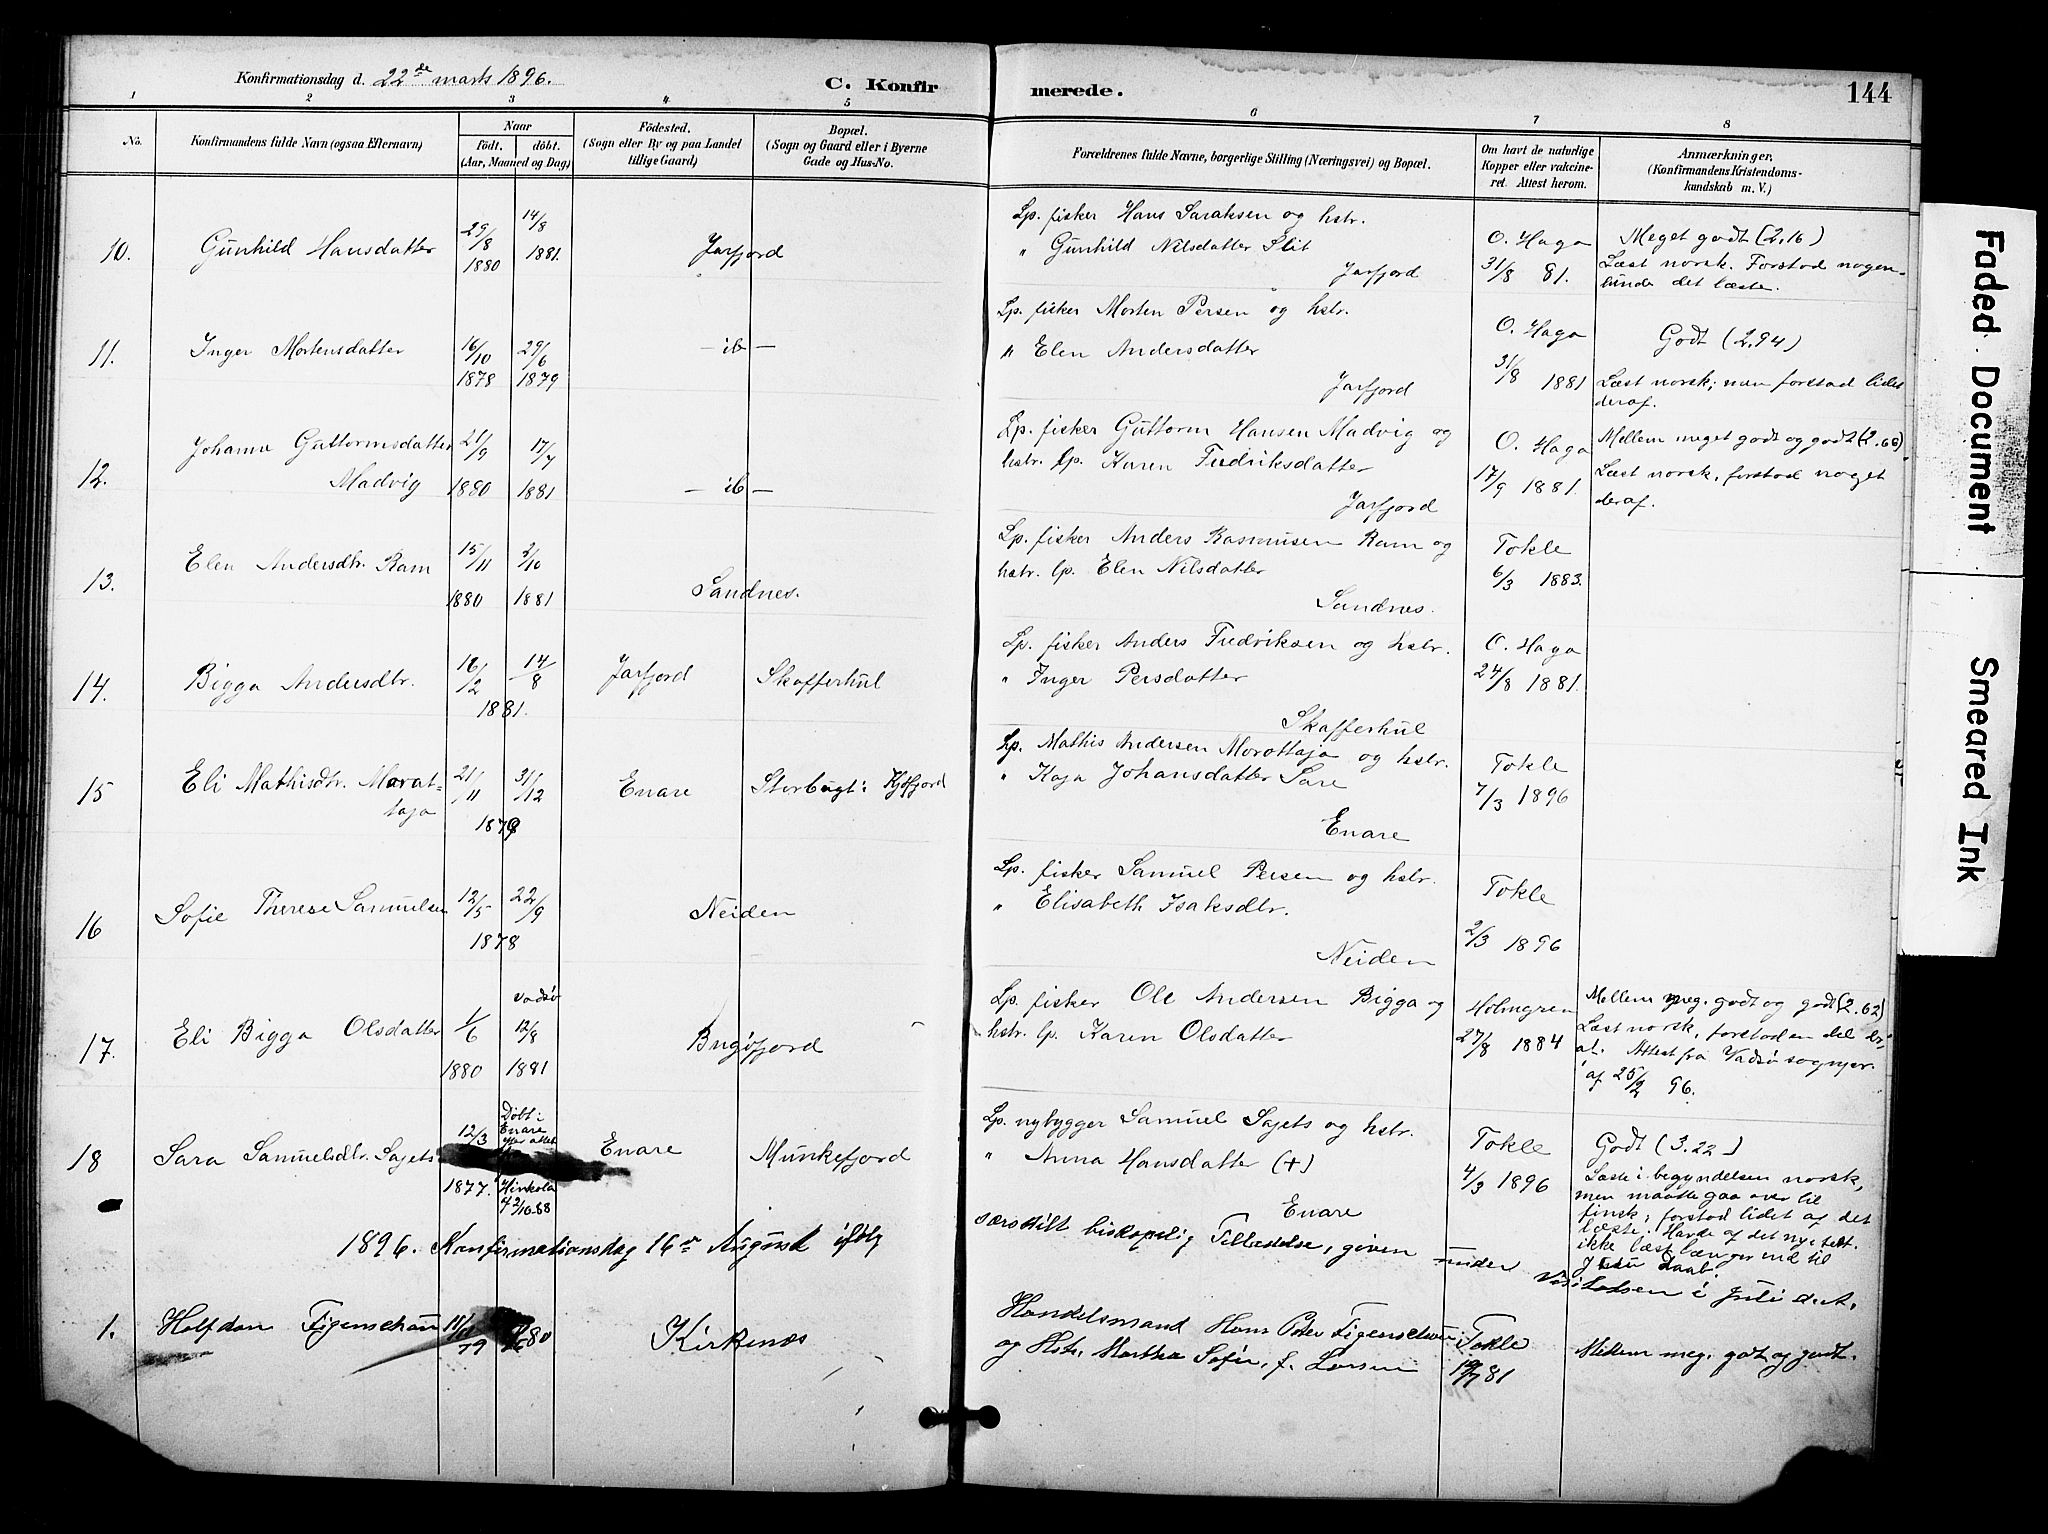 Konfirmationsdag d. 22de marts 1896.
C. Konfir
merede.
144
1 2 3 4 5 6 7 8
No.
Konfirmandens fulde Navn (ogsaa Efternavn)
Naar
födt. döbt.
(Aar, Maaned og Dag)
Födested.
(Sogn eller By og paa Landet
tillige Gaard)
Bopæl.
(Sogn og Gaard eller i Byerne
Gade og Hus-No.
Forældrenes fulde Navne, borgerlige Stilling (Næringsvei) og Bopæl.
Om havt de naturlige
Kopper eller vakcine-
ret. Attest herom.
Anmærkninger.
(Konfirmandens Kristendoms-
kundskab m. V.)
10. Gunhild Hansdatter
29/8 1880
14/8 1881.
Jarfjord
Lp. fisker Hans Saraksen og hstr.
" Gunhild Nilsdatter Slit
Jarfjord
O. Haga
31/8 81.
Meget godt (2.16)
Læst norsk. Forstod nogen-
lunde det læste.
11. Inger Mortensdatter
16/10 1878
29/6 1879
— ib —
Lp. fisker Morten Persen og hstr.
" Elen Andersdatter
Jarfjord
O. Haga
31/8 1881
Godt (2.94)
Læst norsk; men forstod lidet
deraf.
12. Johanna Guttormsdatter
Madvig
21/9 1880
17/7 1881
— ib —
Lp. fisker Guttorm Hansen Madvig og
hstr. lp. Karen Fredriksdatter
Jarfjord
O. Haga
17/9 1881.
Mellem meget godt og godt (2.66)
Læst norsk, forstod noget
deraf.
13. Elen Andersdtr. Ram
15/11 1880
2/10 1881
Sandnes.
Lp. fisker Anders Rasmusen Ram og
hstr. lp. Elen Nilsdatter
Sandnes.
Tokle
6/3 1883.
14. Bigga Andersdtr.
16/2
14/8
1881.
Jarfjord
Skafferhul
Lp. fisker Anders Fredriksen og hstr.
" Inger Persdatter
Skafferhul
O. Haga
24/8 1881.
15 Eli Mathisdtr. Marat-
taja
21/11
31/12
1879
Enare
Storbugt i Kjøfjord
Lp. Mathis Andersen Morottaja og hstr.
" Kaja Johansdatter Sare
Enare
Tokle
7/3 1896
16 Sofie Therese Samuelsen
12/5
22/9
1878
Neiden
Lp. fisker Samuel Persen og hstr.
" Elisabeth Isaksdtr.
Neiden
Tokle
2/3 1896
17. Eli Bigga Olsdatter
1/6 1880
Vadsø
12/8 1881
Bugøfjord
Lp. fisker Ole Andersen Bigga og
hstr. lp. Karen Olsdatter
Holmgren
27/8 1884
Mellem meg. godt og godt (2.62)
Læst norsk, forstod en del der-
af. Attest fra Vadsø sognepr.
af 25/2 96.
18 Sara Samuelsdtr. Sajets
12/3
1877.
Døbt i
Enare
Enare
Munkefjord
Lp. nybygger Samuel Sajets og hstr.
" Anna Hansdatter (+)
Enare
Tokle
4/3 1896
Godt (3.22)
Læste i begyndelsen norsk,
men maatte gaa over til
finsk; forstod lidet af det
læste. Havde af det nye test.
ikke læst længer end til
1896. Konfirmationsdag 16de August ifølg
særskilt biskopelig Tilladelse, given under
i Juli d. A.
1. Halfdan Figenschau
11/11 79
80
Kirkenæs
Handelsmand Hans Peter Figenschau
og Hstr. Martha Sofie, f. Larsen
Tokle
81
Mellem meg. godt og godt.
Faded Document
Smeared Ink